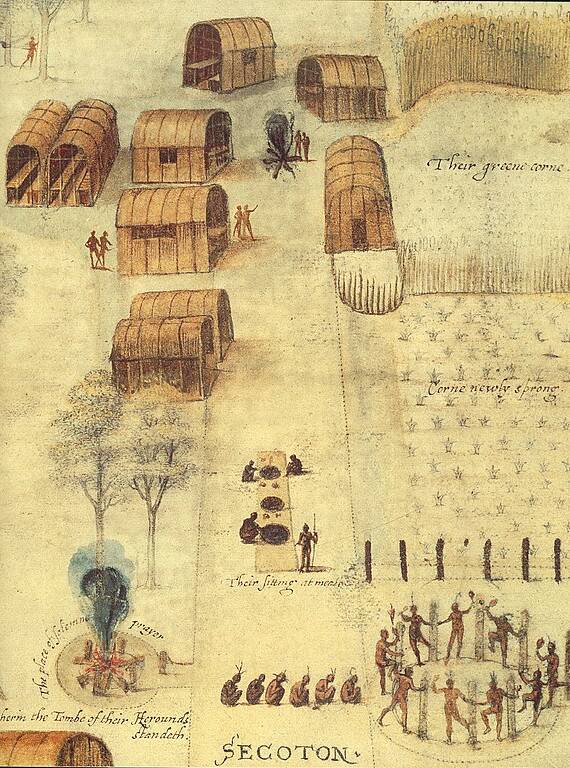 Their greene corne.
Corne newly sprong.
Their sitting at meate
The place of solemne prayer
herin the Tombe of their Herounds
standeth.
SECOTON.